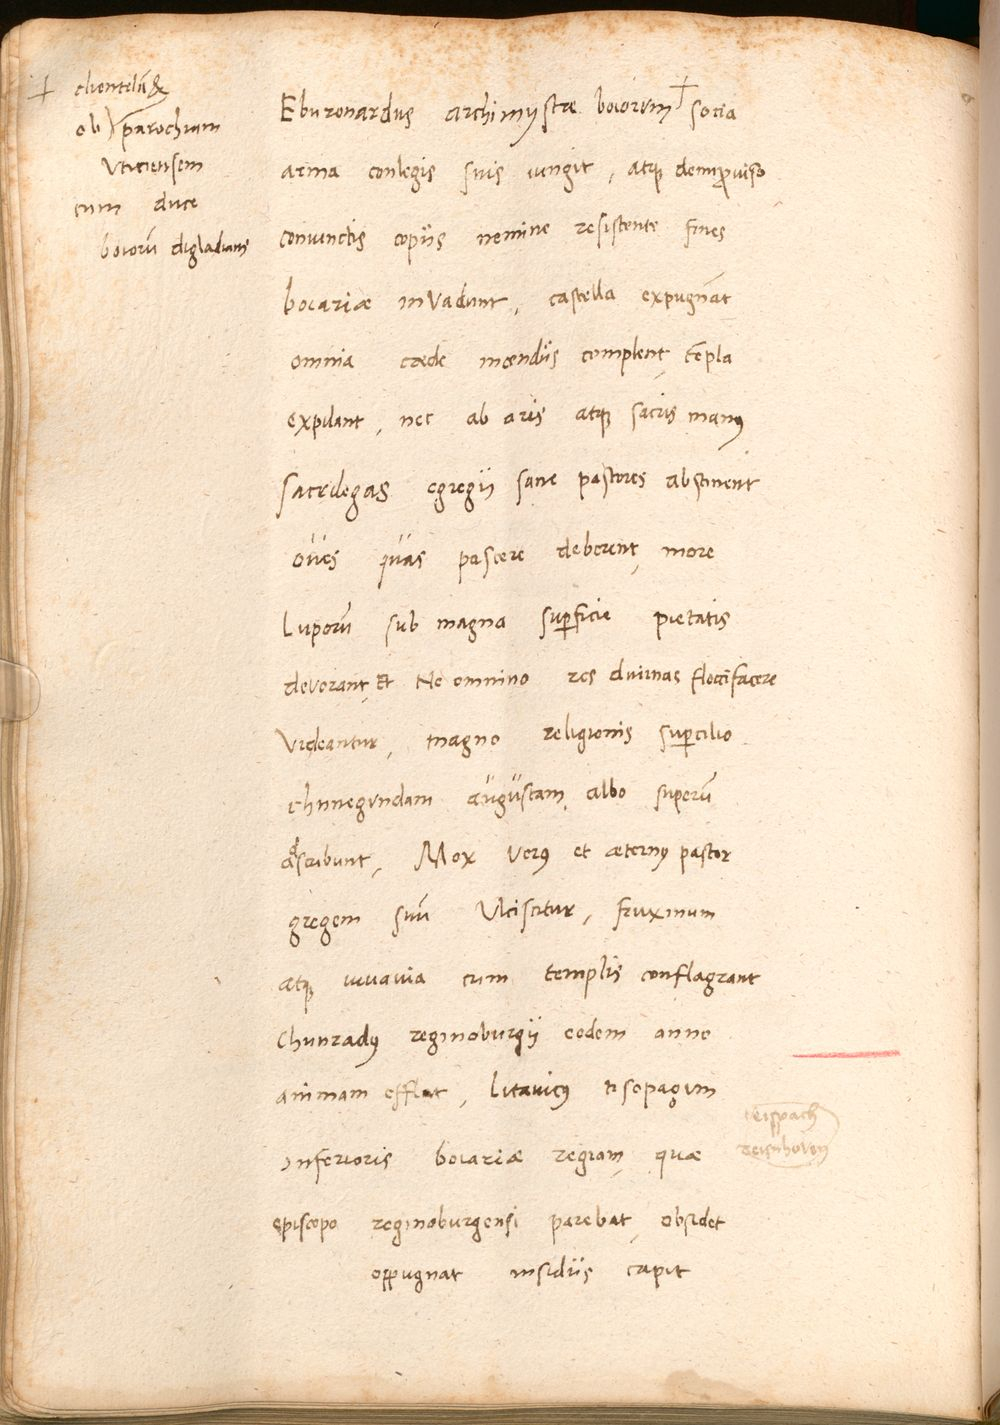 + clientelā &
ob) parochium
Uticensem
cum duce
boiorū digladians
Eburonardus archimystæ boiorum + socia
arma conlegis suis iungit, atq; deimproviso
coniunctis copiis nemine resistente fines
boiariæ invadunt, castella expugnāt
omnia cæde incendiis complent, tēpla
expilant, nec ab aris atq; sacris manus
sacrilegas egregii sane pastores abstinent
oves quas pascere deberent, more
luporū sub magna superficie pietatis
devorant, Et Ne omnino res divinas floccifacere
videantur, magno religionis supercilio
chunegundam augustam albo superū
adscribunt, Mox verus et æternus pastor
gregem suū Ulciscitur, fruxinum
atq; iuvavia cum templis conflagrant
Chunradus reginoburgii eodem anno
animam efflat, litavicus tisopagum
inferioris boiariæ regiam, quæ
teispach
reisnhoven
episcopo reginoburgensi parebat, obsidet
oppugnat insidiis capit